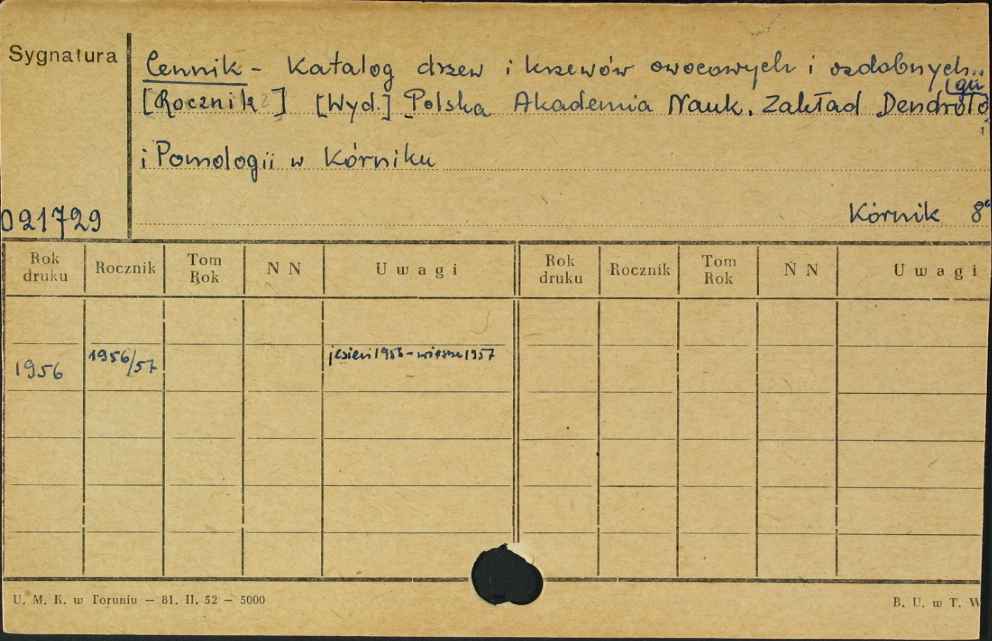 Sygnatura
Cennik - Katalog drzew i krzewów owocowych i ozdobnych..
[Rocznik] [Wyd.] Polska Akademia Nauk. Zakład Dendrolo
[gii
i Pomologii w Kórniku
021729
Kórnik 8°
Rok druku Rocznik Tom Rok N N Uwagi Rok druku Rocznik Tom Rok N N Uwagi
1956 1956/57 jesień 1956 - wiosna 1957
U. M. K. w Toruniu — 81. II. 52 — 5000
B. U. w T. W